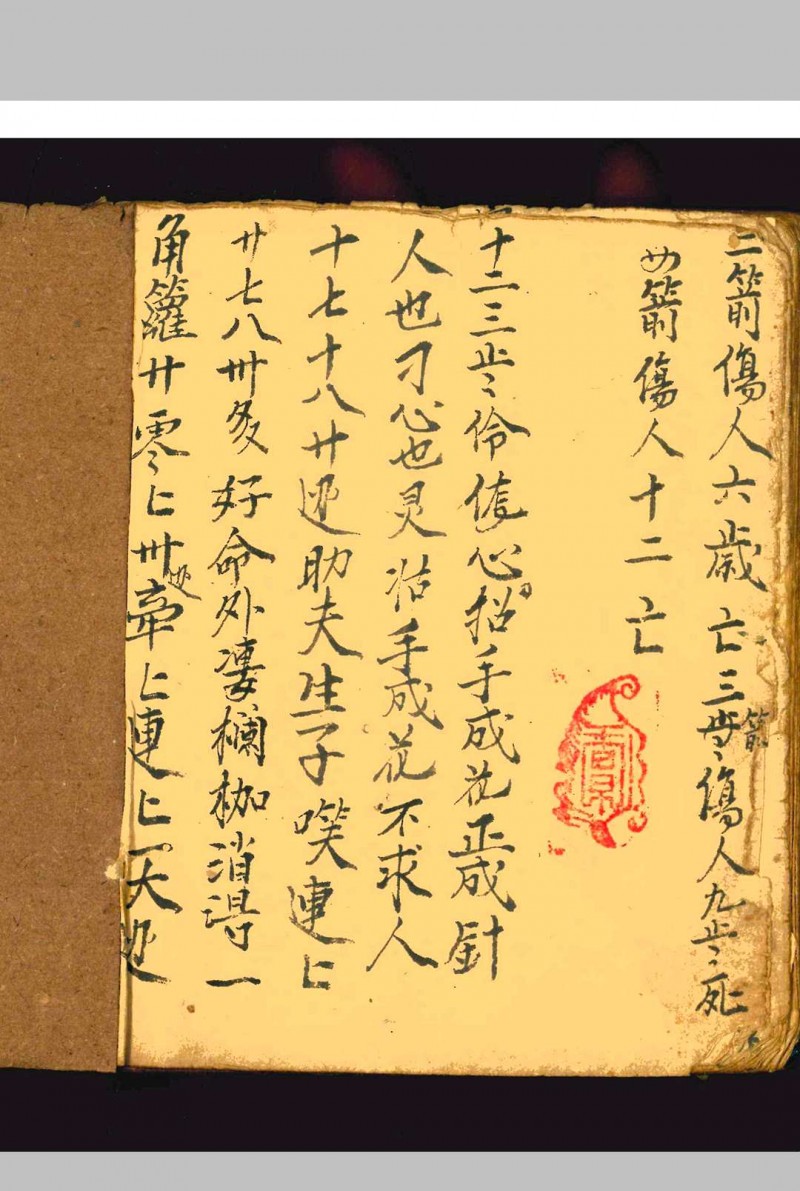 二箭傷人六歲亡三歲箭傷人九歲死
四箭傷人十二亡
十二三歲伶俐心招手成花正成針
人也刁心也灵 手成花不求人
十七十八廿 助夫生子 連匕
廿七八卅多好命外 欄枷消淂一
角籮廿零匕卅 牽匕連匕一大